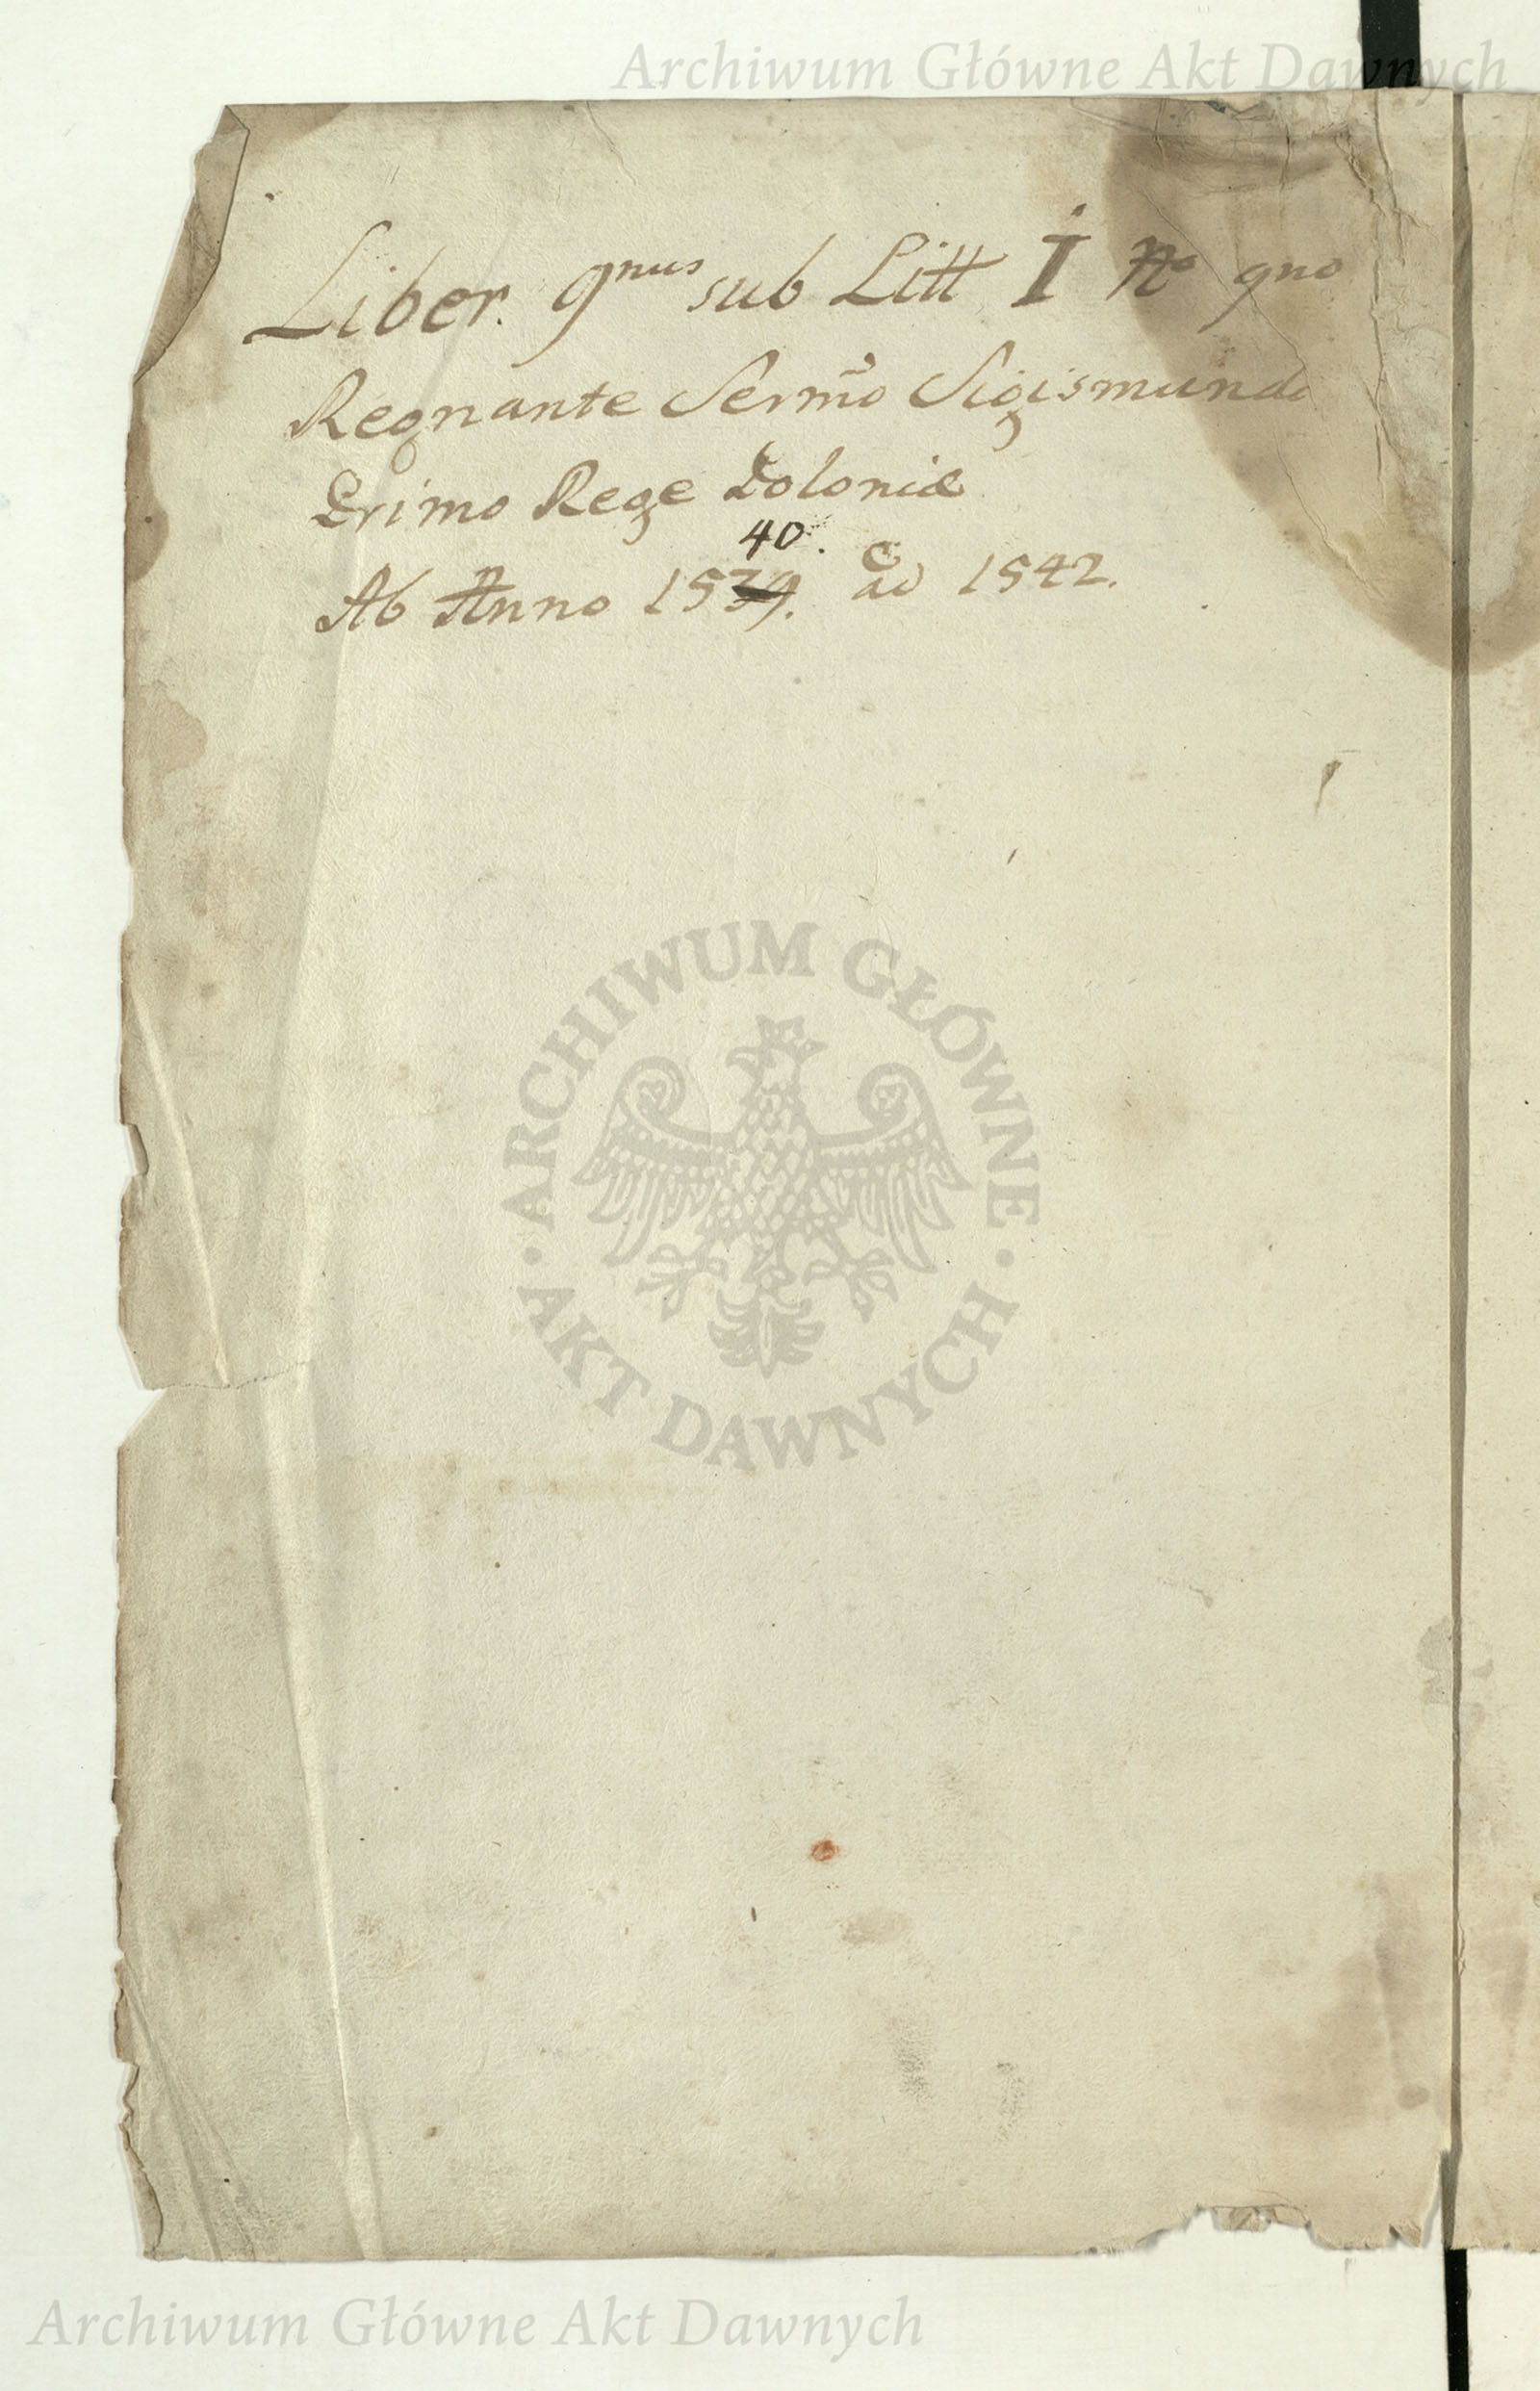 Archiwum Główne Akt Dawnych
Liber. 9nus sub Litt I No 9no
Regnante Sermo Sigismundo
Primo Rege Poloniæ
40.
Ab Anno 1539. ad 1542.
ARCHIWUM GŁÓWNE
AKT DAWNYCH
Archiwum Główne Akt Dawnych